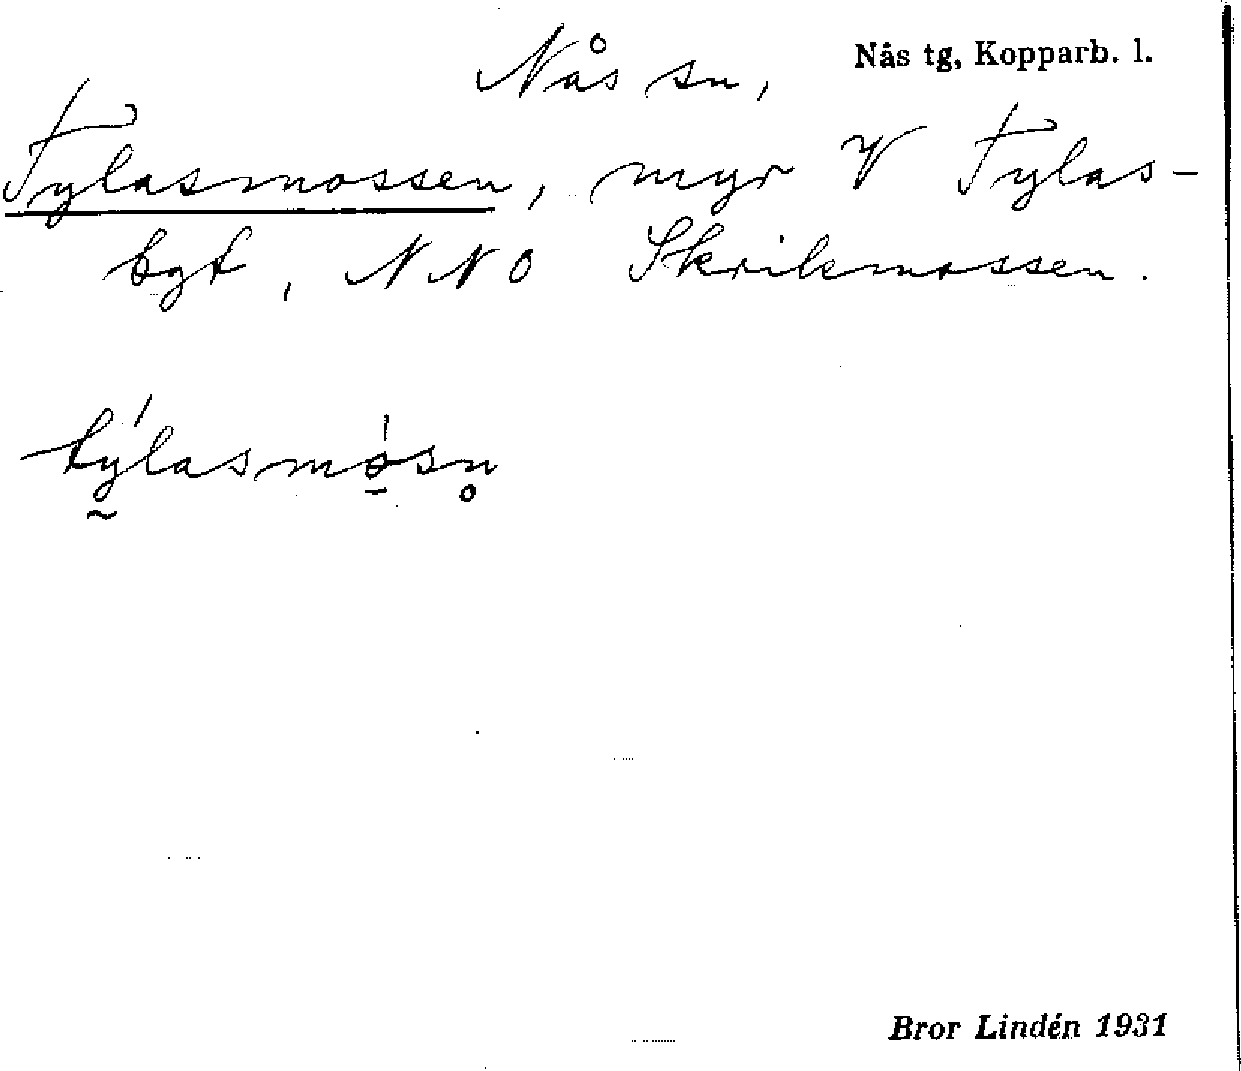 Nås sn, Nås tg, Kopparb. l.
Tylasmossen, myr V Tylas-
bgt, NNO Skrikmossen.
týlasmòsn
Bror Lindén 1931